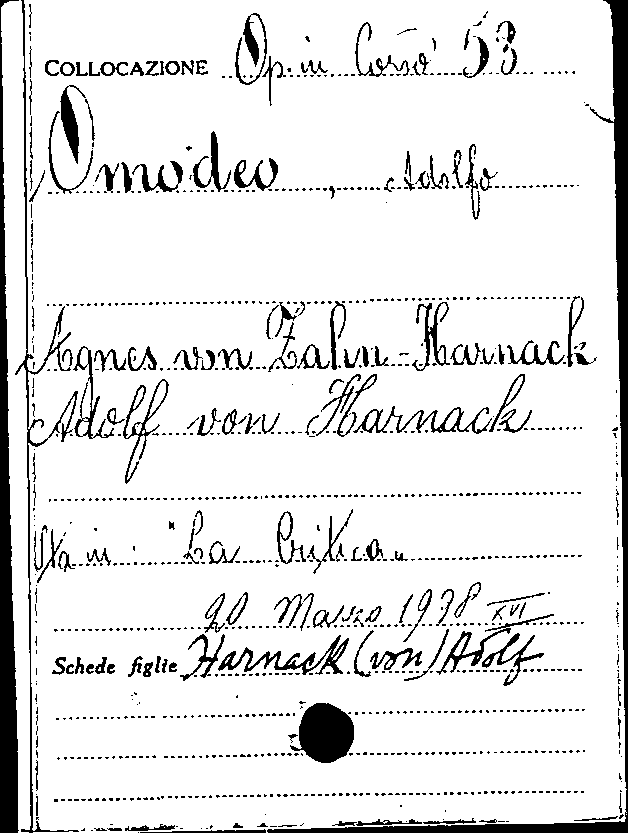 COLLOCAZIONE Op. in Corso 53
Omodeo, Adolfo
Agnes von Zahn-Harnack
Adolf von Harnack
Sta in: "La Critica"
20 Marzo 1938 XVI
Schede figlie Harnack (von) Adolf